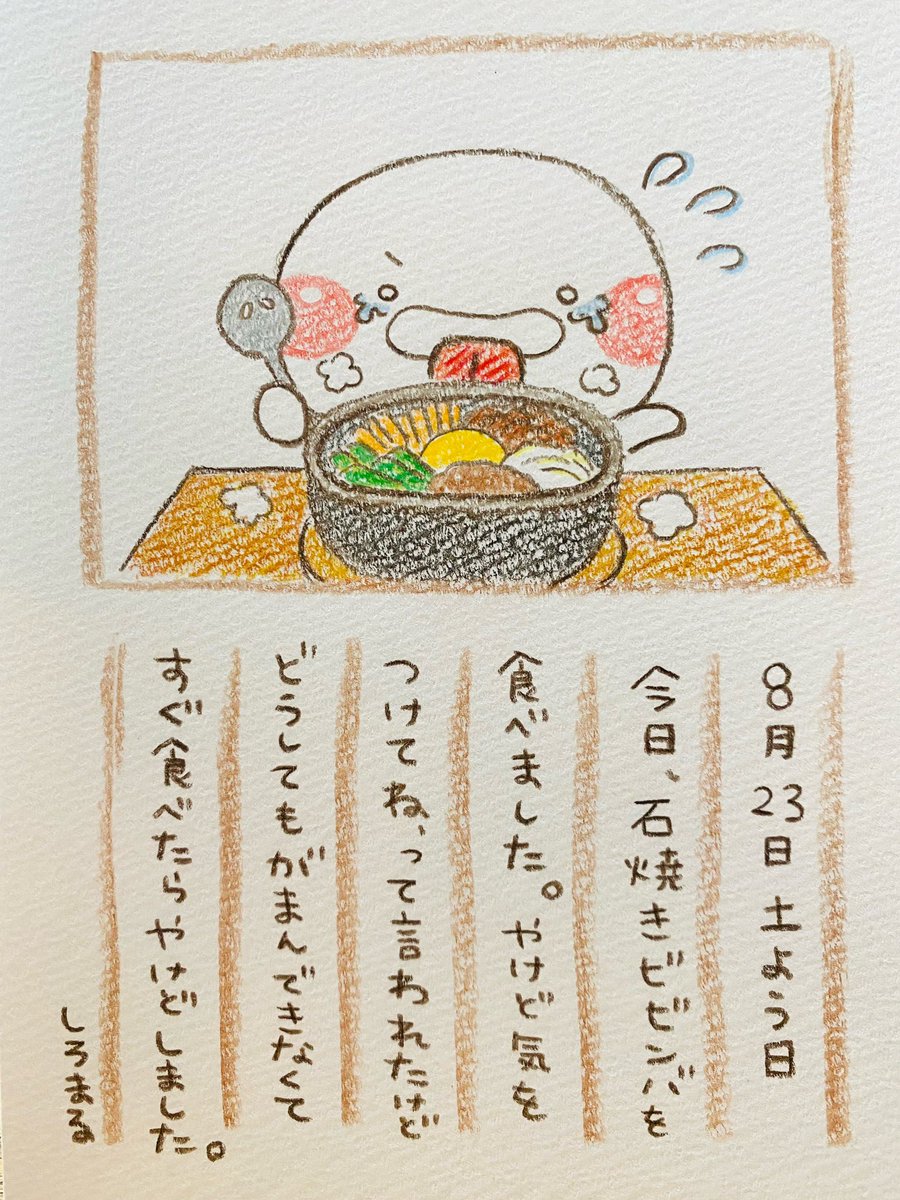 8月23日土よう日
今日、石焼きビビンバを
食べました。やけど気を
つけてね、って言われたけど
どうしてもがまんできなくて
すぐ食べたらやけどしました。
しろまる